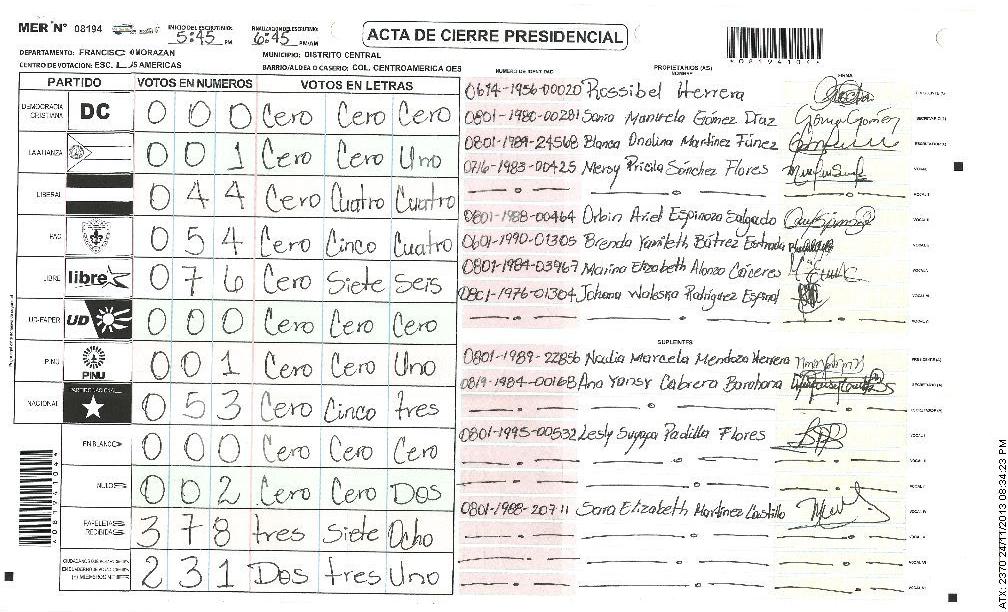 MER Nº 08194
INICIO DEL ESCRUTINIO: 5:45 PM
FINALIZACION DEL ESCRUTINIO: 6:45 PM/AM
ACTA DE CIERRE PRESIDENCIAL
DEPARTAMENTO: FRANCISCO MORAZAN
MUNICIPIO: DISTRITO CENTRAL
CENTRO DE VOTACION: ESC. AMERICAS
BARRIO/ALDEA O CASERIO: COL. CENTROAMERICA OES
*08194104*
PARTIDO VOTOS EN NUMEROS VOTOS EN LETRAS
DEMOCRACIA CRISTIANA DC 0 0 0 Cero Cero Cero
LA ALIANZA 0 0 1 Cero Cero Uno
LIBERAL 0 4 4 Cero Cuatro Cuatro
PAC 0 5 4 Cero Cinco Cuatro
LIBRE libre 0 7 6 Cero Siete Seis
UD-FAPER UD 0 0 0 Cero Cero Cero
PINU PINU 0 0 1 Cero Cero Uno
NACIONAL PARTIDO NACIONAL 0 5 3 Cero Cinco tres
EN BLANCO 0 0 0 Cero Cero Cero
NULOS 0 0 2 Cero Cero Dos
PAPELETAS RECIBIDAS 3 7 8 tres Siete Ocho
2 3 1 Dos tres Uno
NUMERO DE IDENTIDAD PROPIETARIOS (AS) NOMBRE FIRMA
0614-1956-00020 Rossibel Herrera
0801-1980-00281 Sonia Manuela Gómez Díaz
0801-1989-24568 Blanca Ondina Martínez Fúnez
0716-1983-00425 Mersy Pricila Sánchez Flores
0801-1988-00464 Orbin Ariel Espinoza Salgado
0601-1990-01305 Brenda Yamileth Bátrez Estrada
0801-1984-03967 Marina Elizabeth Alonzo Cáceres
0801-1976-01304 Johana Waleska Rodríguez Espinal
SUPLENTES
0801-1989-22856 Nadia Marcela Mendoza Herrera
0819-1984-00168 Ana Yansy Cabrera Barahona
0801-1995-00532 Lesly Suyapa Padilla Flores
0801-1988-20711 Sara Elizabeth Martínez Castillo
ATX: 2370 24/11/2013 08:34:23 PM